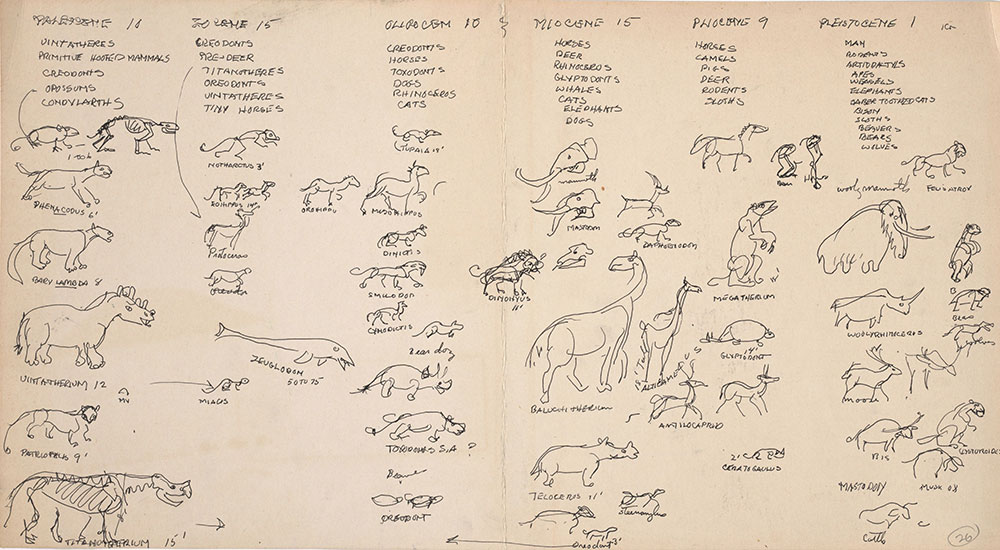 PALEOCENE
EOCENE 15
OLIGOCEN 10
MIOCENE 15
PLIOCENE 9
PLEISTOCENE 1
UINTATHERES
PRIMITIVE HOOFED MAMMALS
CREODONTS
OPOSSUMS
CONDYLARTHS
CREODONTS
PRE-DEER
TITANOTHERES
OREODONTS
UINTATHERES
TINY HORSES
CREODONTS
HORSES
TOXODONTS
DOGS
RHINOCEROS
CATS
HORSES
DEER
RHINOCEROS
GLYPTODONTS
WHALES
CATS
ELEPHANTS
DOGS
HORSES
CAMELS
PIGS
DEER
RODENTS
SLOTHS
MAN
RODENTS
ARTIODACTYLS
APES
WEASELS
ELEPHANTS
SABER TOOTHED CATS
BISON
SLOTHS
BEAVERS
BEARS
WOLVES
PHENACODUS 6'
BARYLAMBDA 8'
UINTATHERIUM 12
PATRIOFELIS 9'
TITANOTHERIUM 15'
NOTHARCTUS 3'
EOHIPPUS
OROHIPPU
ZEUGLODON
50 TO 75
MIACIS
TUPAIA
MESOHIPPUS
DINICTIS
SMILODON
CYNODICTIS
Bear dog
TOXODONTS S.A ?
OREODONT
mammoth
MASTODON
DAPHOENODON
DINOHYUS
11'
BALUCHITHERIUM
ALTICAMELUS
TELOCERUS 11'
Oreodont 3'
MEGATHERIUM
GLYPTODONT
14'
ANTILOCAPRID
2'
CERATOGAULUS
wooly mammoth
WOOLYRHINOCEROS
moose
BIS
MUSK OX
MASTODON
Cattle
26